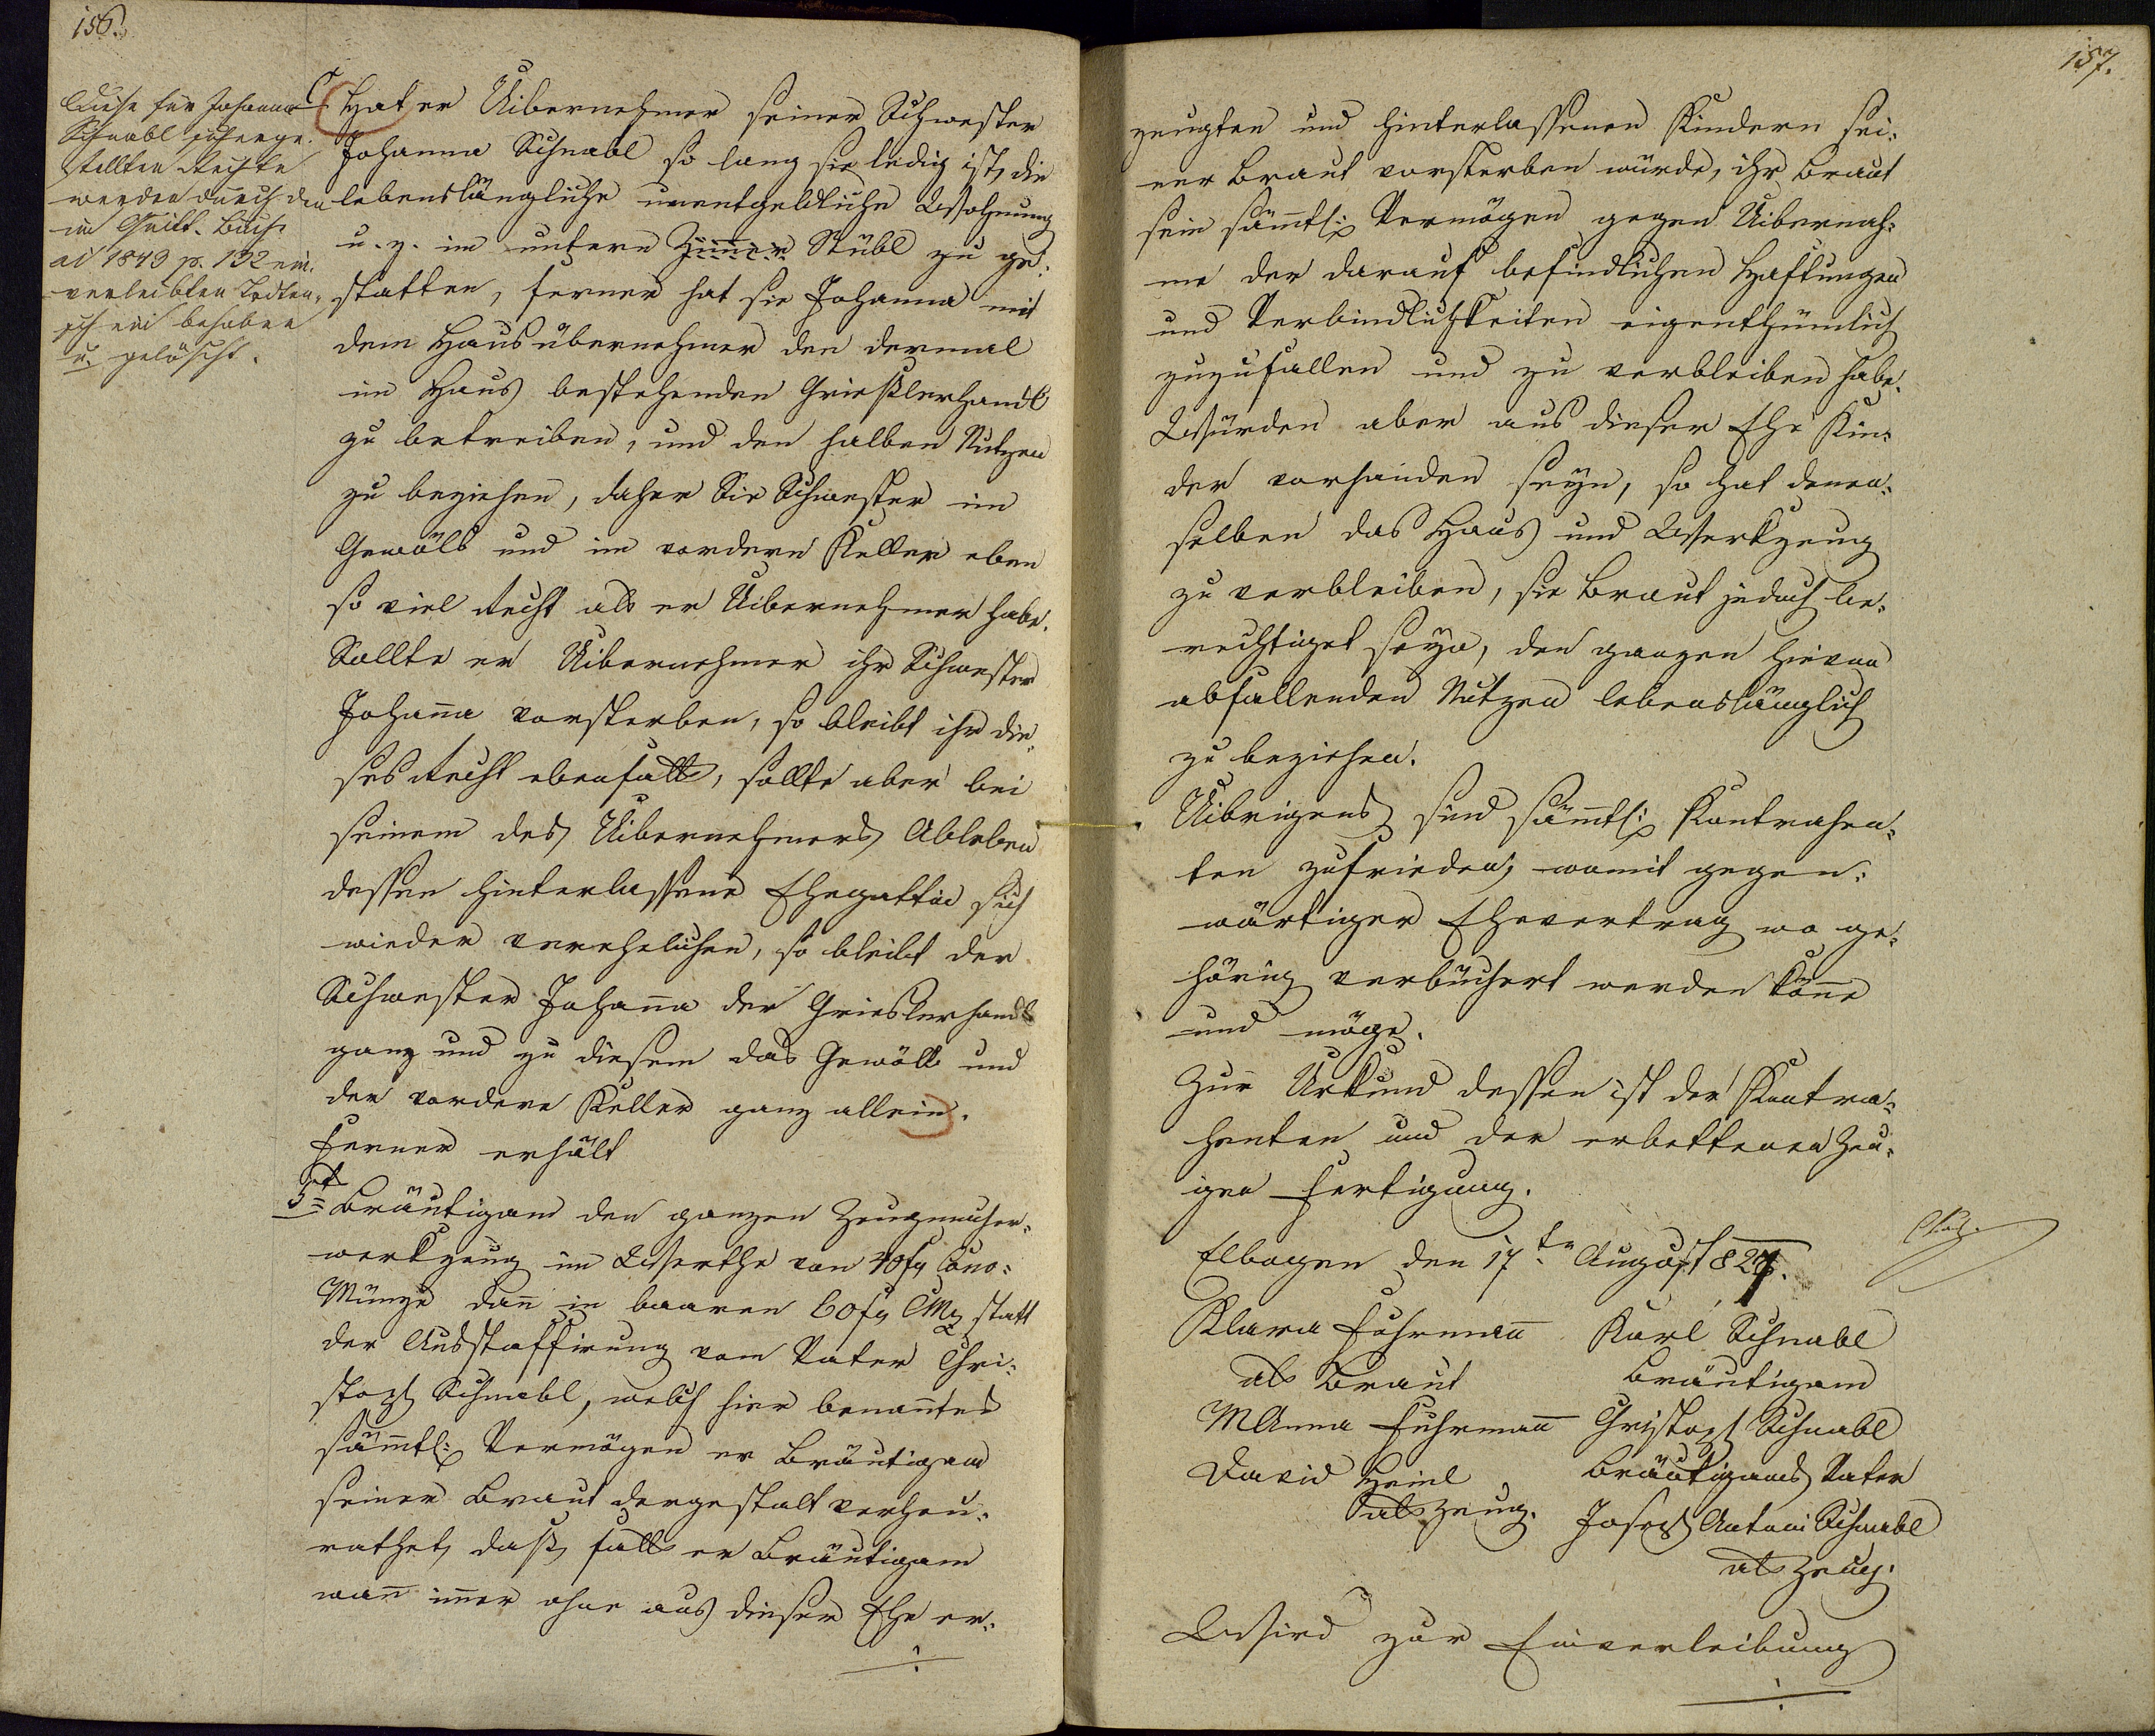 156.
Diese für Johanna
Schnabl sichenge-
stellten Rechte
werden durch den
im Quitt. Buch
ai 1843 p. 132 ein-
verleibten Todten-
schein behoben
u. gelöscht.
C Hat er Uibernehmer seiner Schwester
Johanna Schnabl so lang sie ledig ist, die
lebenslängliche unentgeldliche Wohnung
u. z. im untern Zimer Stübl zu ge:
statten, ferner hat sie Johanna mit
dem Hausübernehmer den dermal
im Haus bestehenden Grießlerhandl
zu betreiben, und den halben Nutzen
zu beziehen, daher Sie Schwester im
Gewölb und im vordern Keller eben
so viel Recht als er Uibernehmer habe.
Sollte er Uibernehmer ihr Schwester
Johana vorsterben, so bleibt ihr die-
ses Recht ebenfalls, sollte aber bei
seinem des Uibernehmers Ableben
dessen hinterlassene Ehegattin sich
wieder verehelichen, so bleibt der
Schwester Johana der Grieslerhandl
ganz und zu diesem das Gewölb und
der vordere Keller ganz allein.
Ferner erhält
5t Bräutigam den ganzen Zeugmacher-
werkzeug im Werthe von 40 fr Conv:
Münze dan in baaren 60 fr CMz statt
der Ausstaffirung vom Vater Chri-
stoph Schnabl, welch hier benantes
sämtl: Vermögen er Bräutigam
seiner Braut dergestalt verheu-
rathet, daß, falls er Bräutigam
wan imer ohne aus dieser Ehe er-
157.
zeugten und hinterlassenen Kindern sei-
ner Braut vorsterben würde, ihr Braut
sein sämtl: Vermögen gegen Uibernah-
me der darauf befindlichen Haftungen
und Verbindlichkeiten eigenthümlich
zuzufallen und zu verbleiben habe.
Würden aber aus dieser Ehe Kin-
der vorhanden seyn, so hat denen-
selben das Haus und Werkzeug
zu verbleiben, sie Braut jedoch be-
rechtiget seyn, den ganzen hievon
abfallenden Nutzen lebenslänglich
zu beziehen.
Uibrigens sind sämtl: Kontrahen-
ten zufrieden, womit gegen-
wärtiger Ehevertrag wo ge-
hörig verbüchert werden köne
und möge.
Zur Urkund dessen ist der Kontra-
henten und der erbettenen Zeu-
gen Fertigung.
Elbogen den 17ten August 827.
Klara Fuhrman Karl Schnabl
als Braut Bräutigam
MAnna Fuhrman Christoph Schnabl
David Heinl Bräutigams Vater
als Zeug. Joseph Antoni Schnabl
als Zeug.
Wird zur Einverleibung